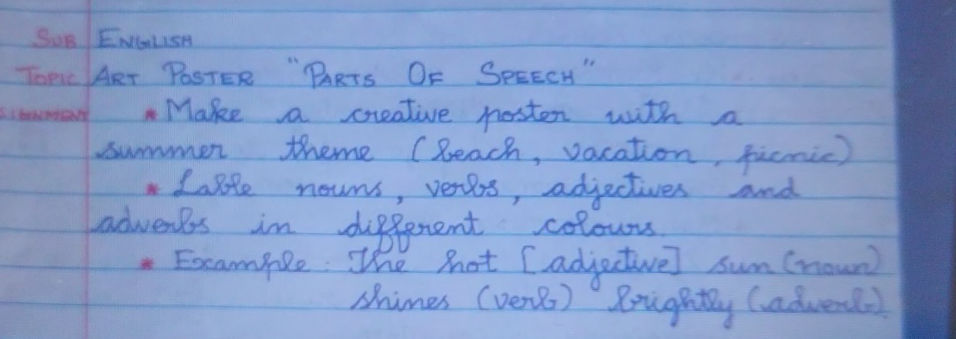 SUB ENGLISH
TOPIC ART POSTER "PARTS OF SPEECH"
* Make a creative poster with a
summer theme (beach, vacation, picnic)
* Lable nouns, verbs, adjectives and
adverbs in different colours.
* Example: The hot [adjective] sun (noun)
shines (verb) brightly (adverb)